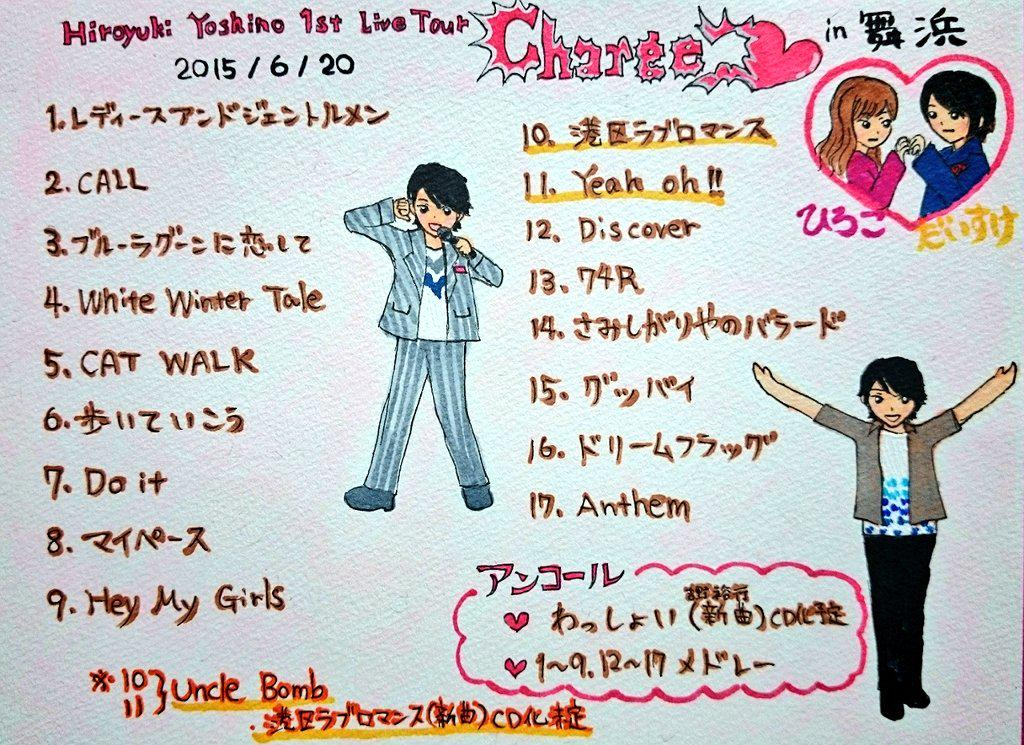 Hiroyuki Yoshino 1st Live Tour Charge in 舞浜
2015/6/20
1. レディースアンドジェントルメン
2. CALL
3. ブルーラグーンに恋して
4. White Winter Tale
5. CAT WALK
6. 歩いていこう
7. Do it
8. マイペース
9. Hey My Girls
※10 11 } Uncle Bomb
・港区ラブロマンス(新曲)CD化未定
10. 港区ラブロマンス
11. Yeah oh!!
12. Discover
13. 74R
14. さみしがりやのバラード
15. グッバイ
16. ドリームフラッグ
17. Anthem
ひろこ だいすけ
アンコール
吉野裕行
♥ わっしょい(新曲)CD化予定
♥ 1〜9, 12〜17 メドレー